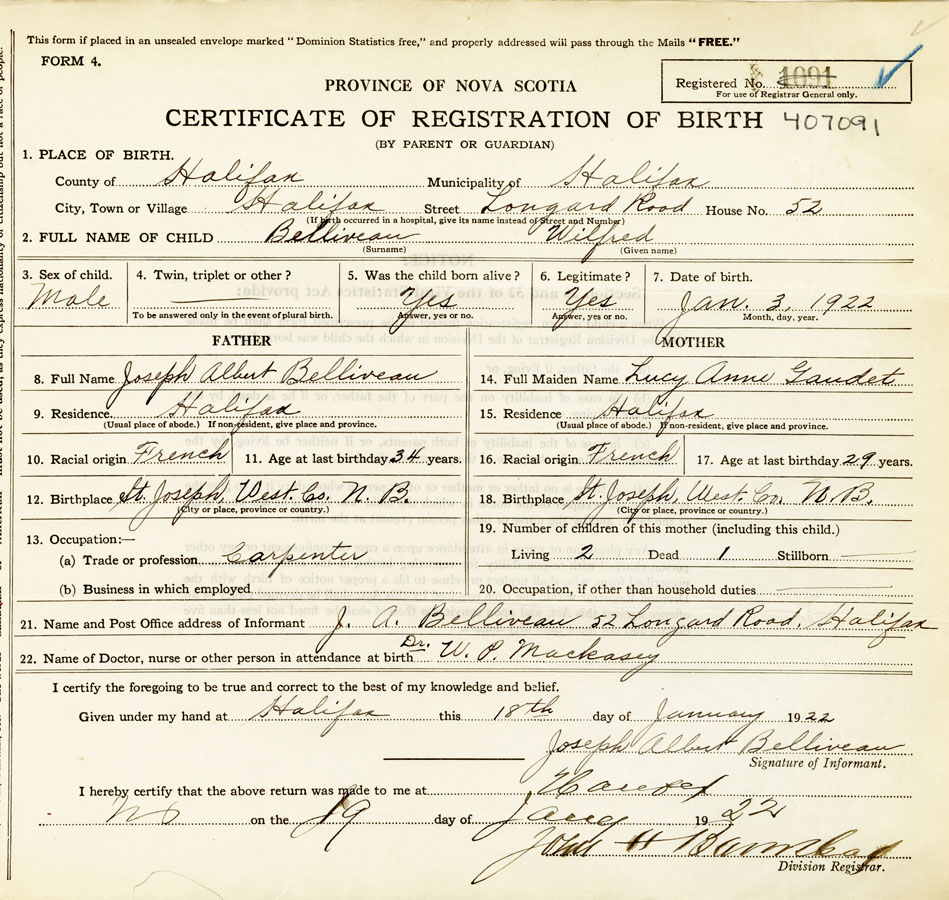 This form if placed in an unsealed envelope marked "Dominion Statistics free," and properly addressed will pass through the Mails "FREE."
FORM 4.
Registered No. 1091
For use of Registrar General only.
PROVINCE OF NOVA SCOTIA
CERTIFICATE OF REGISTRATION OF BIRTH 407091
(BY PARENT OR GUARDIAN)
1. PLACE OF BIRTH.
County of Halifax Municipality of Halifax
City, Town or Village Halifax Street Longard Road House No. 52
(If birth occurred in a hospital, give its name instead of Street and Number)
2. FULL NAME OF CHILD Belliveau Wilfred
(Surname) (Given name)
3. Sex of child. 4. Twin, triplet or other? 5. Was the child born alive? 6. Legitimate? 7. Date of birth.
Male Yes Yes Jan. 3, 1922
To be answered only in the event of plural birth. Answer, yes or no. Answer, yes or no. Month, day, year.
FATHER MOTHER
8. Full Name Joseph Albert Belliveau 14. Full Maiden Name Lucy Anne Gaudet
9. Residence. Halifax 15. Residence Halifax
(Usual place of abode.) If non-resident, give place and province. (Usual place of abode.) If non-resident, give place and province.
10. Racial origin French 11. Age at last birthday 34 years. 16. Racial origin French 17. Age at last birthday 29 years.
12. Birthplace St. Joseph, West. Co. N. B. 18. Birthplace St. Joseph, West. Co. N. B.
(City or place, province or country.) (City or place, province or country.)
13. Occupation:— 19. Number of children of this mother (including this child.)
(a) Trade or profession Carpenter Living 2 Dead 1 Stillborn
(b) Business in which employed 20. Occupation, if other than household duties
21. Name and Post Office address of Informant J. A. Belliveau 52 Longard Road, Halifax
22. Name of Doctor, nurse or other person in attendance at birth Dr. W. P. Mackasey
I certify the foregoing to be true and correct to the best of my knowledge and belief.
Given under my hand at Halifax this 18th day of January 1922
Joseph Albert Belliveau
Signature of Informant.
I hereby certify that the above return was made to me at
NS on the 19 day of 1922
John H
Division Registrar.